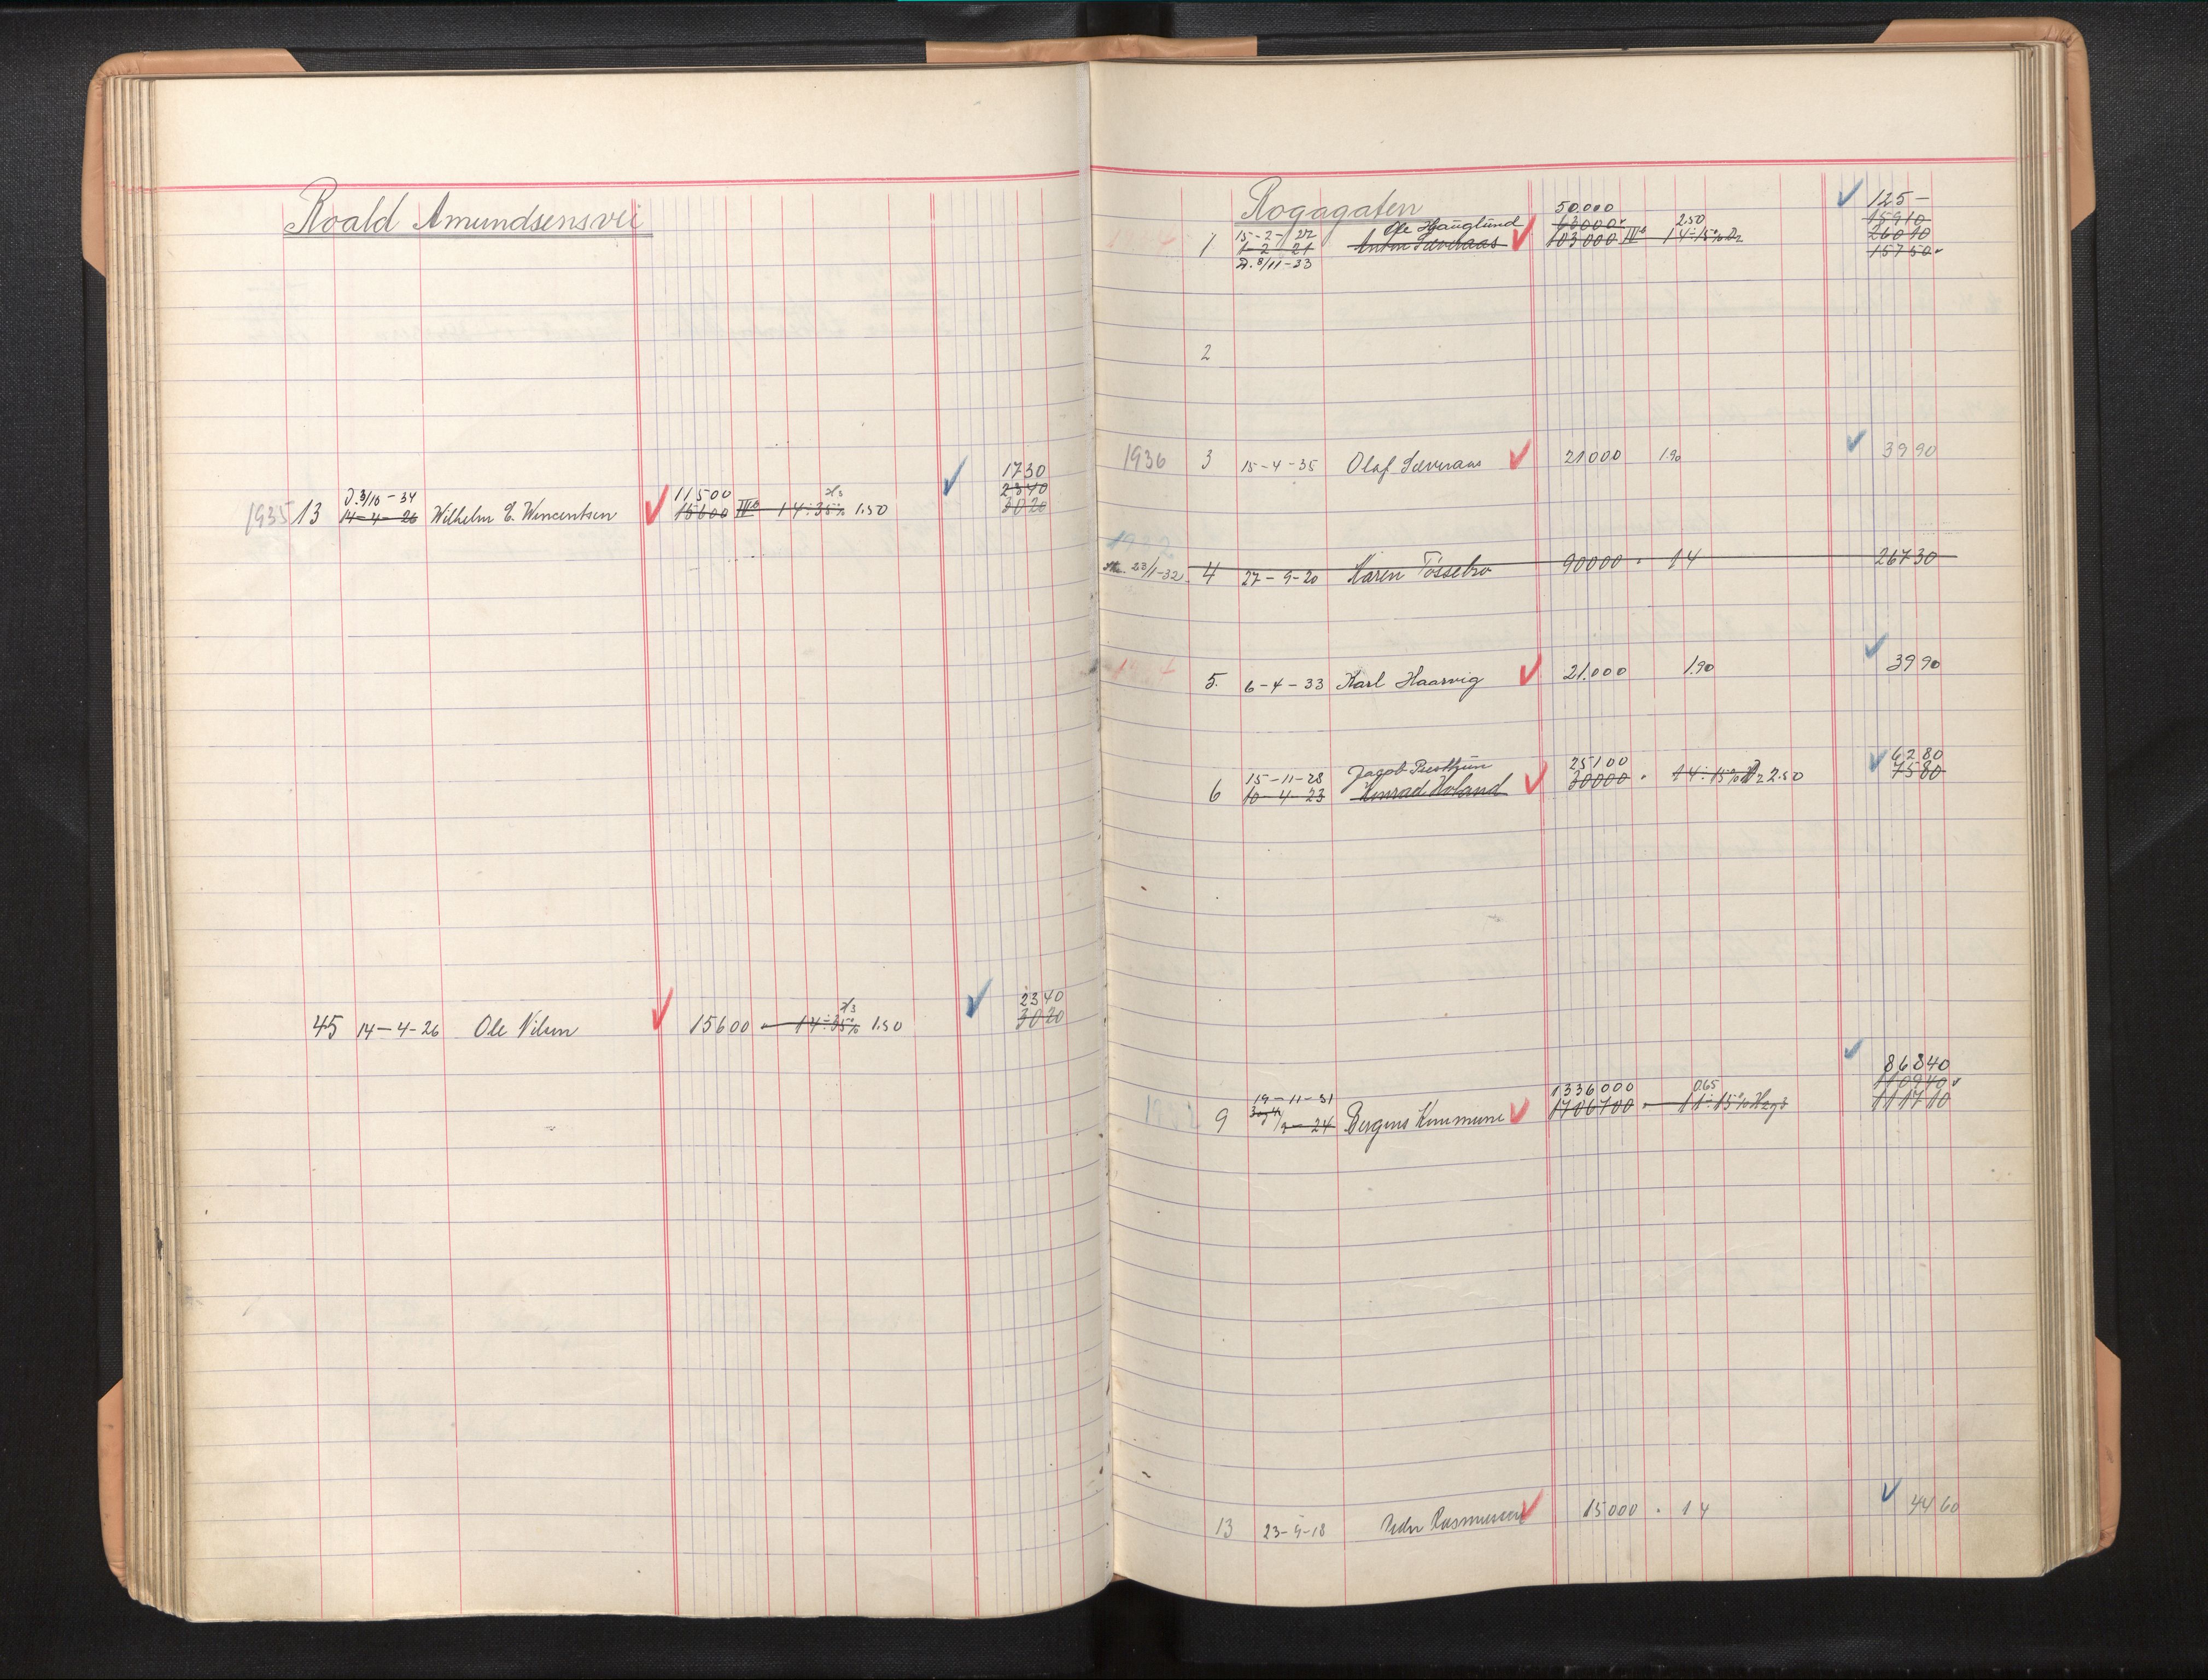 Roald Amundsensvei
1730
11500 2340
1935 13 14-4-26 Wilhelm E. Wencentsen 15600 IVb 14÷35% 1.50 3020
2340
45 14-4-26 Ole Nilsen 15600 " 14÷35% 1.50 3020
Rogagaten
50.000 125-
15-2-22 Ole Hauglund 63000 2.50 15910
1 1-2-21 Anton Sæveraas 103000 IVb 14÷15% 26010
D. 8/11-33 15750
2
1936 3 15-4-35 Olaf Sæveraas 21000 1.90 3990
1932
23/1-32 4 27-9-20 Karen Tössebro 90000 " 14 26730
5. 6-4-33 Karl Haarvig 21.000 1.90 3990
15-11-28 Jagob 25100 6280
6 10-4-23 Konrad Holand 30000 " 14÷15% 2.50 7580
86840
19-11-31 1336000 0.65 110940
9 24 Bergens Kommune 1706700 " 11÷15% 111710
13 23-9-18 Peder Rasmussen 15000 " 14 4460